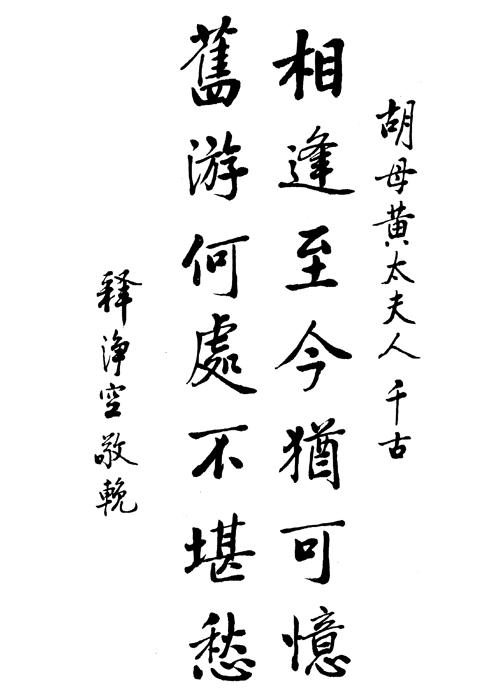 胡母黃太夫人 千古
相逢至今猶可憶
舊游何處不堪愁
釋淨空敬輓